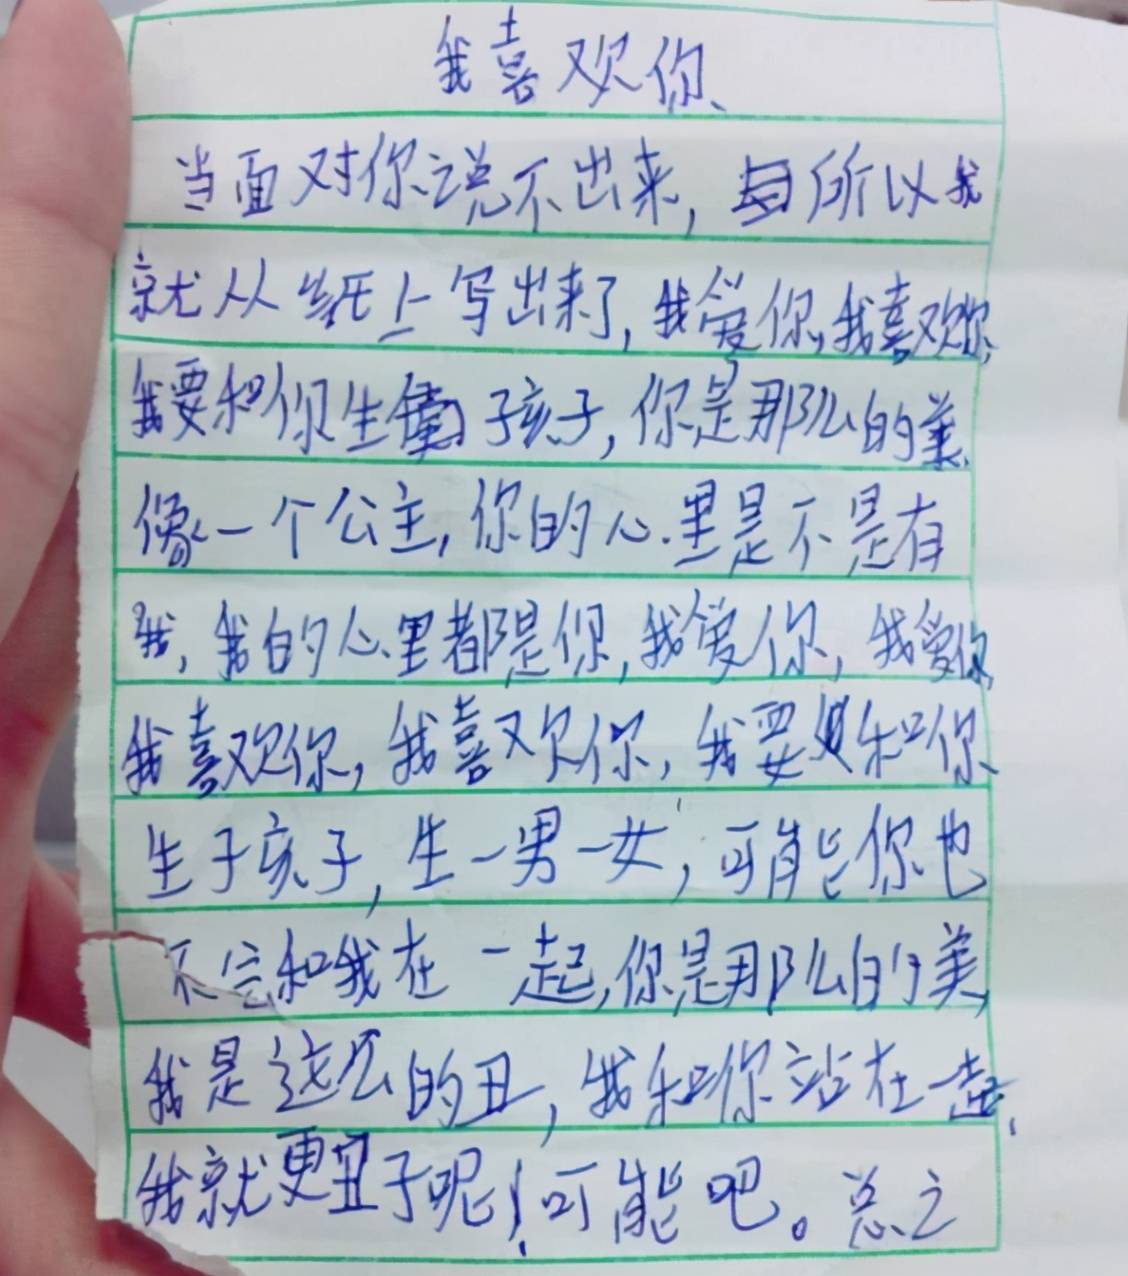 我喜欢你、
当面对你说不出来，所以我
就从纸上写出来了，我爱你，我喜欢你，
我要和你生子孩子，你是那么的美，
像一个公主，你的心里是不是有
我，我的心里都是你，我爱你，我爱你，
我喜欢你，我喜欢你，我要和你
生子孩子，生一男一女，可能你也
不会和我在一起，你是那么的美，
我是这么的丑，我和你站在一起，
我就更丑子呢！可能吧。总之